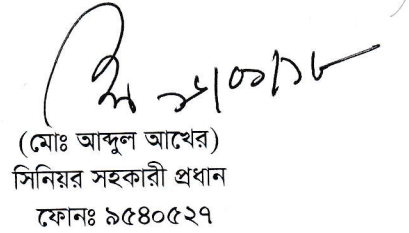 (মোঃ আব্দুল আখের)
সিনিয়র সহকারী প্রধান
ফোনঃ ৯৫৪০৫২৭